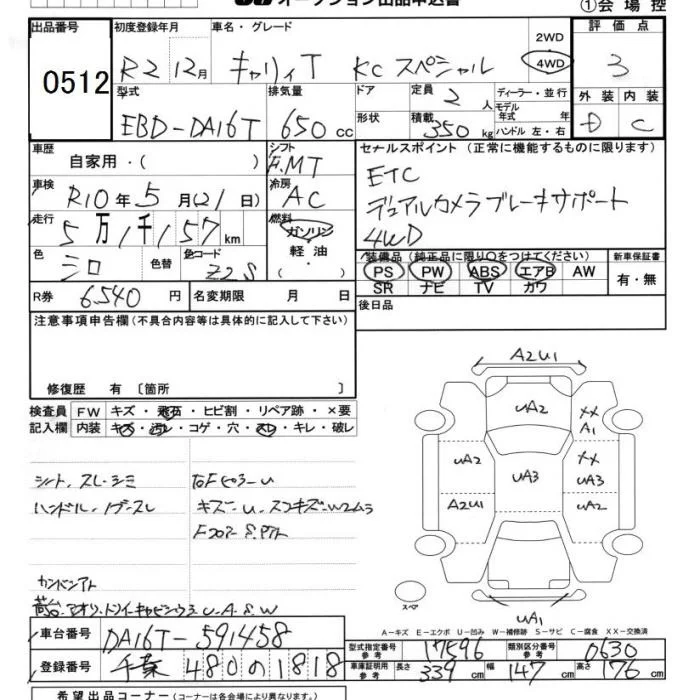 オークション出品申込書
①会場控
出品番号
0512
初度登録年月
R2 12月
車名・グレード
キャリィT KCスペシャル
2WD
4WD
評価点
3
外装 内装
D C
型式
EBD-DA16T
排気量
650cc
ドア
形状
定員 2人
積載 350kg
ディーラー・並行
モデル年式 年
ハンドル 左・右
車歴
自家用・( )
シフト
F.MT
車検
R10年5月(21日)
冷房
AC
走行
5万1千157km
燃料
ガソリン
軽油
・( )
色
シロ
色替
色コード
Z2S
R券 6540円
名変期限 月 日
セールスポイント(正常に機能するものに限ります)
ETC
デュアルカメラブレーキサポート
4WD
装備品(純正品に限り○をつけてください)
PS PW ABS エアB AW
SR ナビ TV カワ
新車保証書
有・無
後日品
注意事項申告欄(不具合内容等は具体的に記入して下さい)
修復歴 有〔箇所 〕
検査員記入欄
FW キズ・飛石・ヒビ割・リペア跡・×要
内装 キズ・汚レ・コゲ・穴・スレ・キレ・破レ
シート、スレ・シミ
ハンドル・ノブ・スレ
キズ-U、スコキズ-W2ムラ
A2U1
UA2
XX
A1
UA2
UA3
XX
UA3
A2U1
UA2
UA1
スペア
A-キズ E-エクボ U-凹み W-補修跡 S-サビ C-腐食 XX-交換済
車台番号
DA16T-591458
登録番号
千葉 480の1818
型式指定番号 参考 17596
類別区分番号 参考 0630
車庫証明用 参考 長さ 339cm 幅 147cm 高さ 176cm
希望出品コーナー(コーナーは各会場により異なります。)